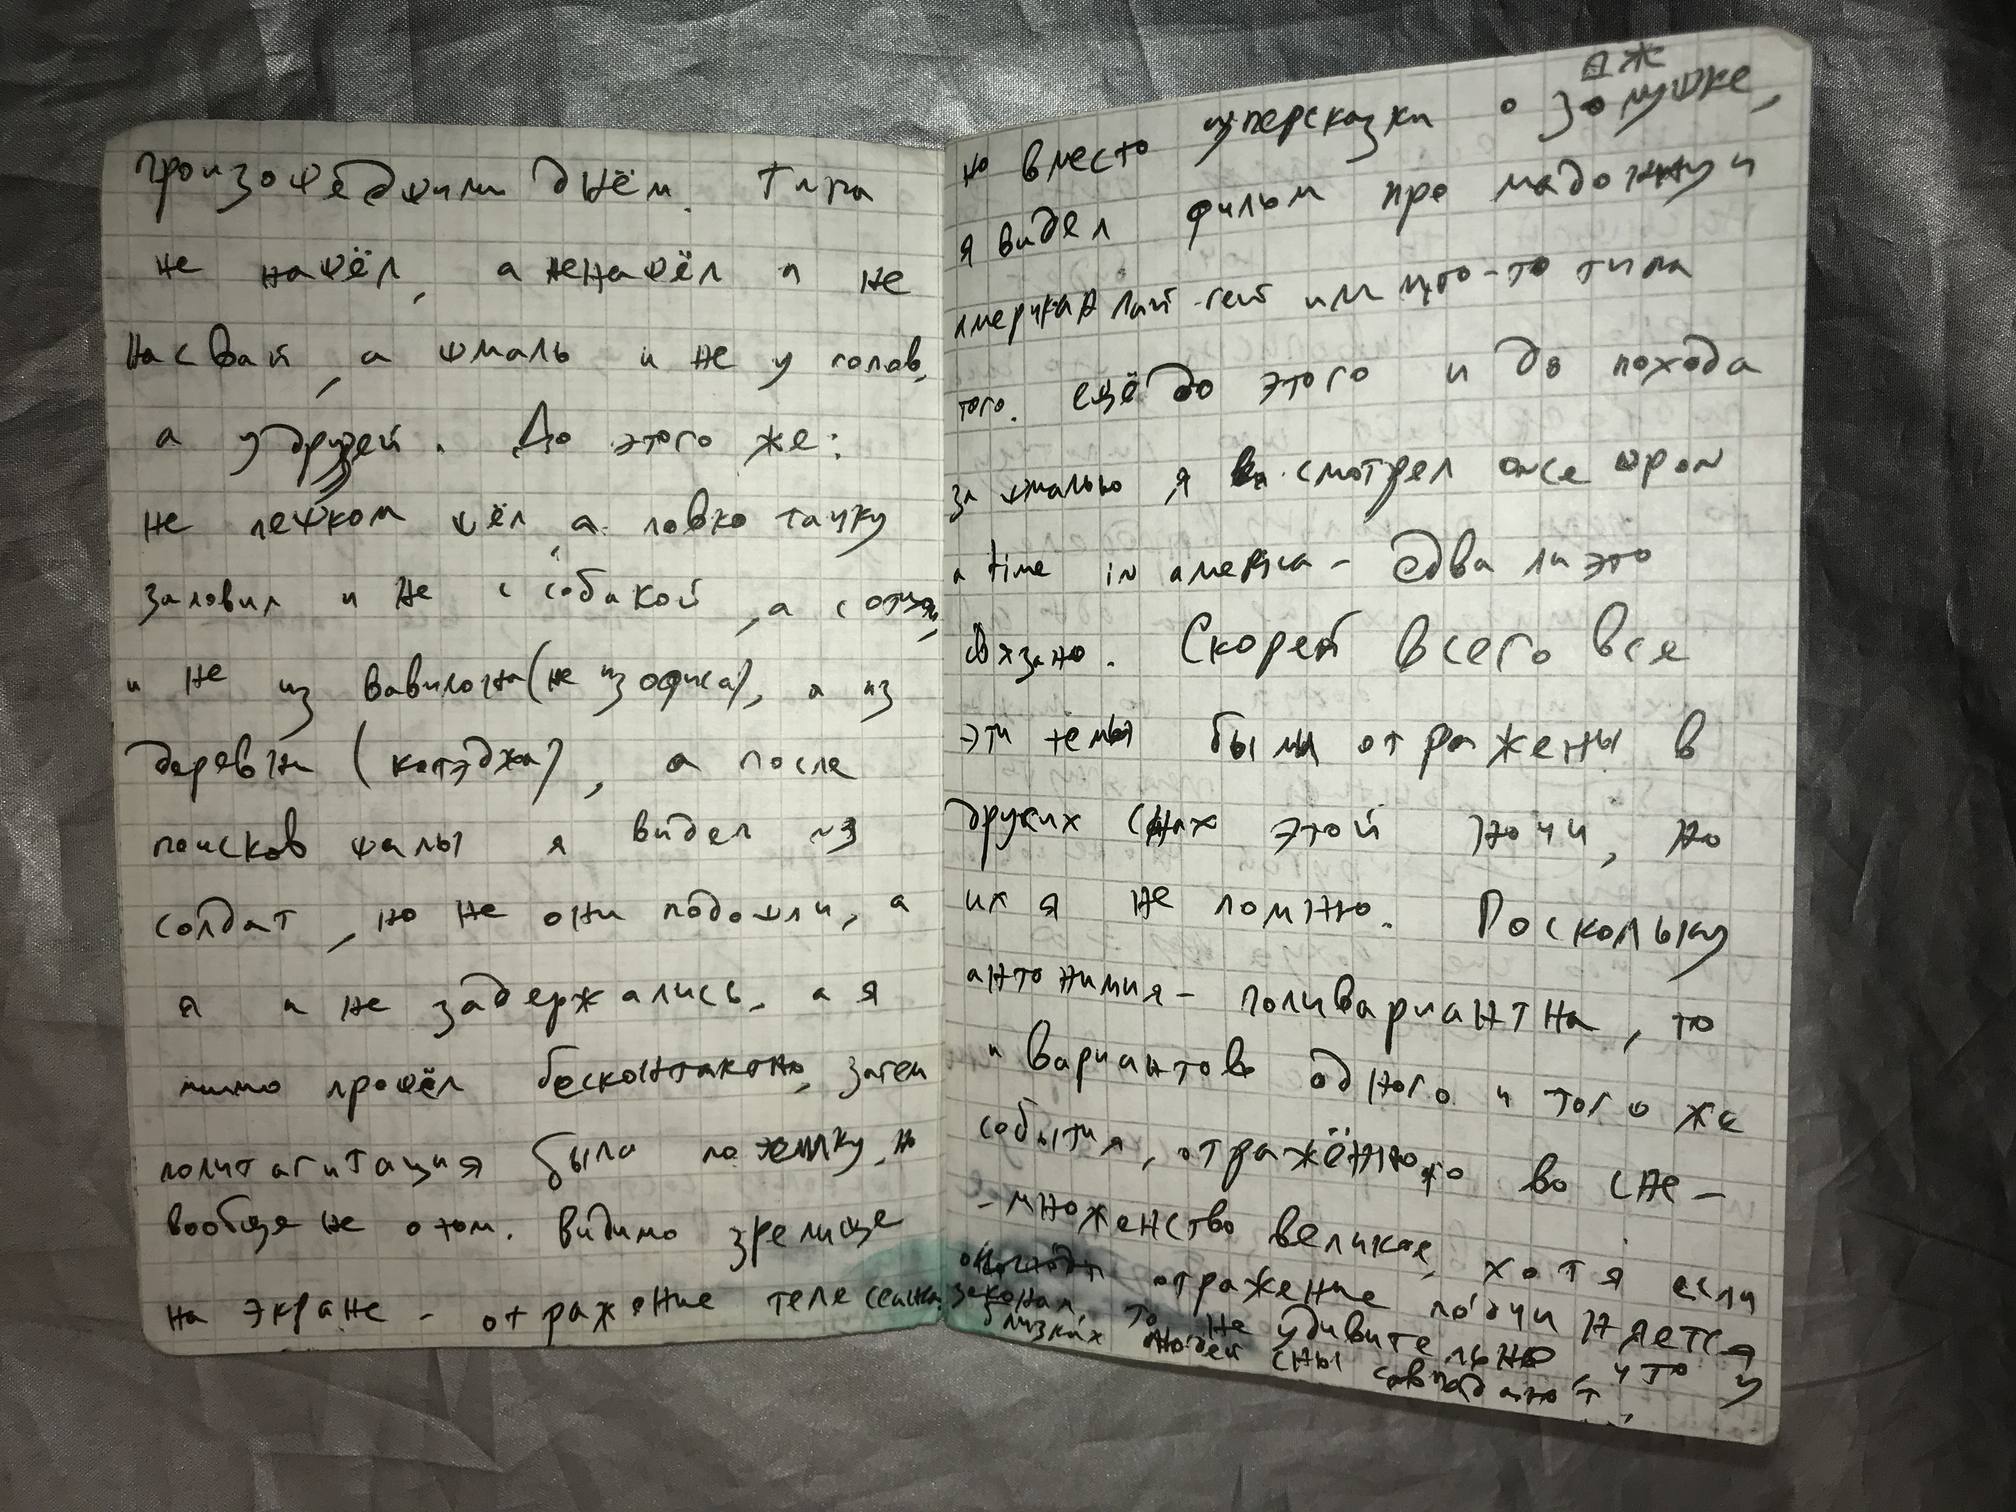 произошедшими днём. Типа
не нашёл, а ненашёл и не
насвай, а шмаль и не у голов,
а у друзей. До этого же:
не пешком шёл, а ловко тачку
заловил и не с собакой, а с отцом,
и не из Вавилона (не из офиса), а из
деревни (котэджа), а после
поисков шмалы я видел из
солдат, но не они подошли, а
я и не задержались, а я
мимо прошёл бесконтактно, затем
политагитация была по телику, но
вообще не о том. Видимо зрелище
на экране - отражение телесеанса,
дж
но вместо суперсказки о золушке,
я видел фильм про мадонну и
американ лайт-гейт или что-то типа
того. Ещё до этого и до похода
за шмалью я смотрел onse upon
a time in america - едва ли это
связано. Скорей всего все
эти темы были отражены в
других снах этой ночи, но
их я не помню. Поскольку
антонимия - поливариантна, то
и вариантов одного и того же
события, отражённого во сне -
- множенство великое, хотя если
отражение подчиняется
законам, то не удивительно, что у
близких людей сны совпадают.